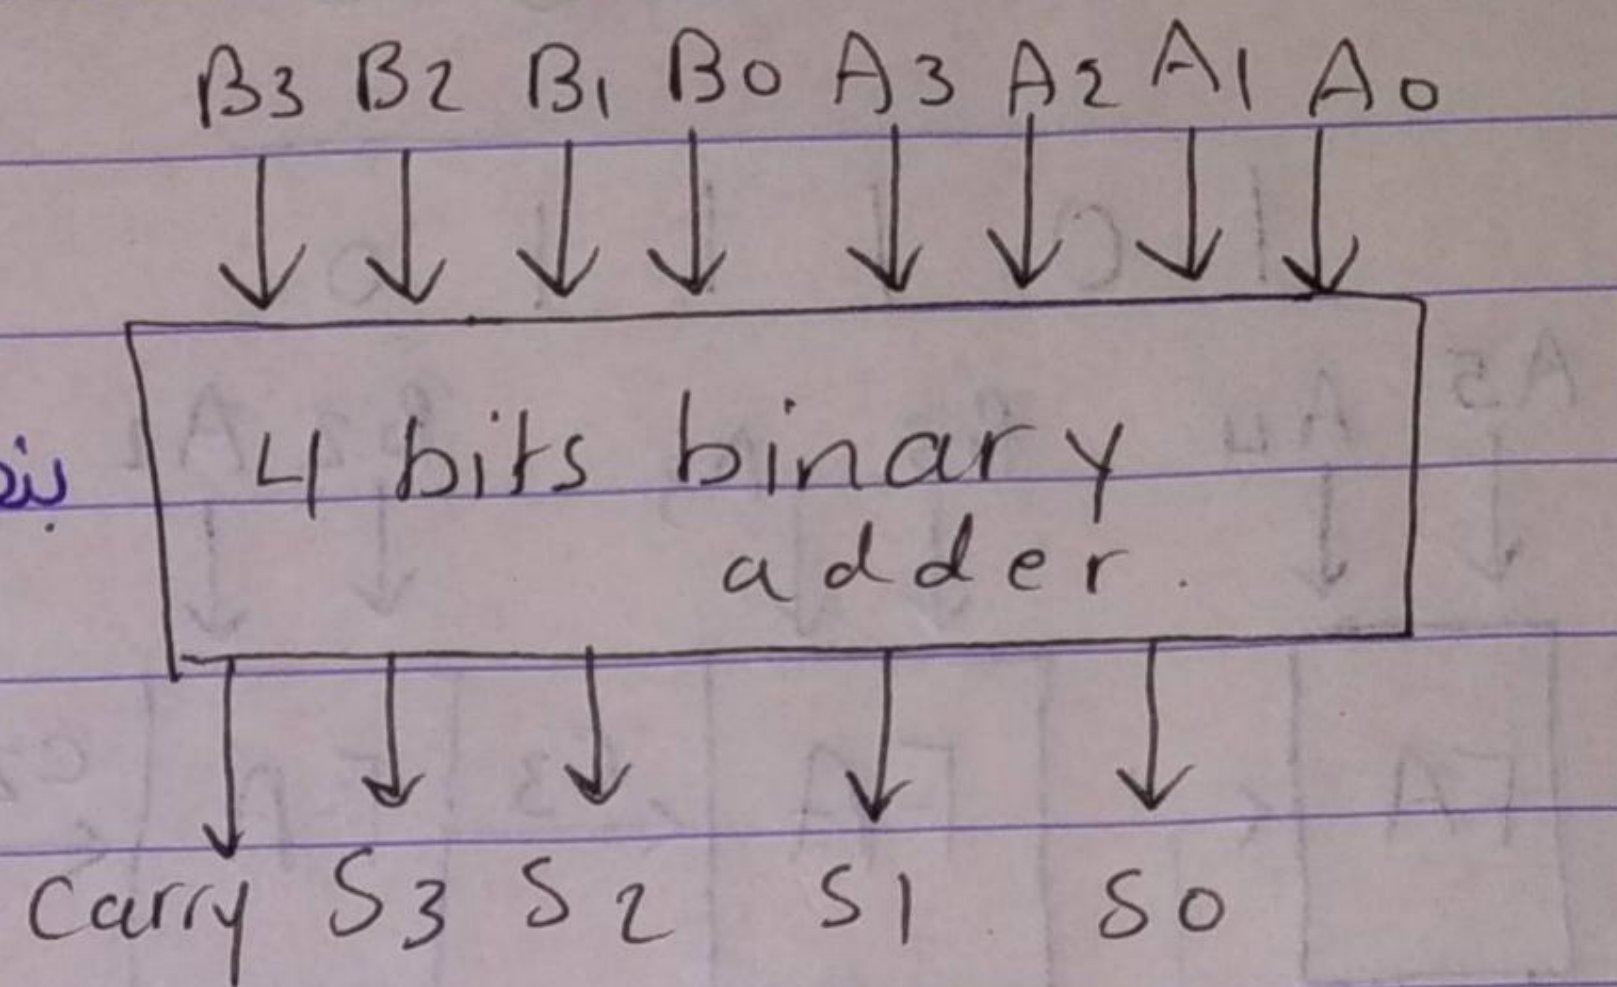 B3 B2 B1 B0 A3 A2 A1 A0
4 bits binary
adder.
Carry S3 S2 S1 S0